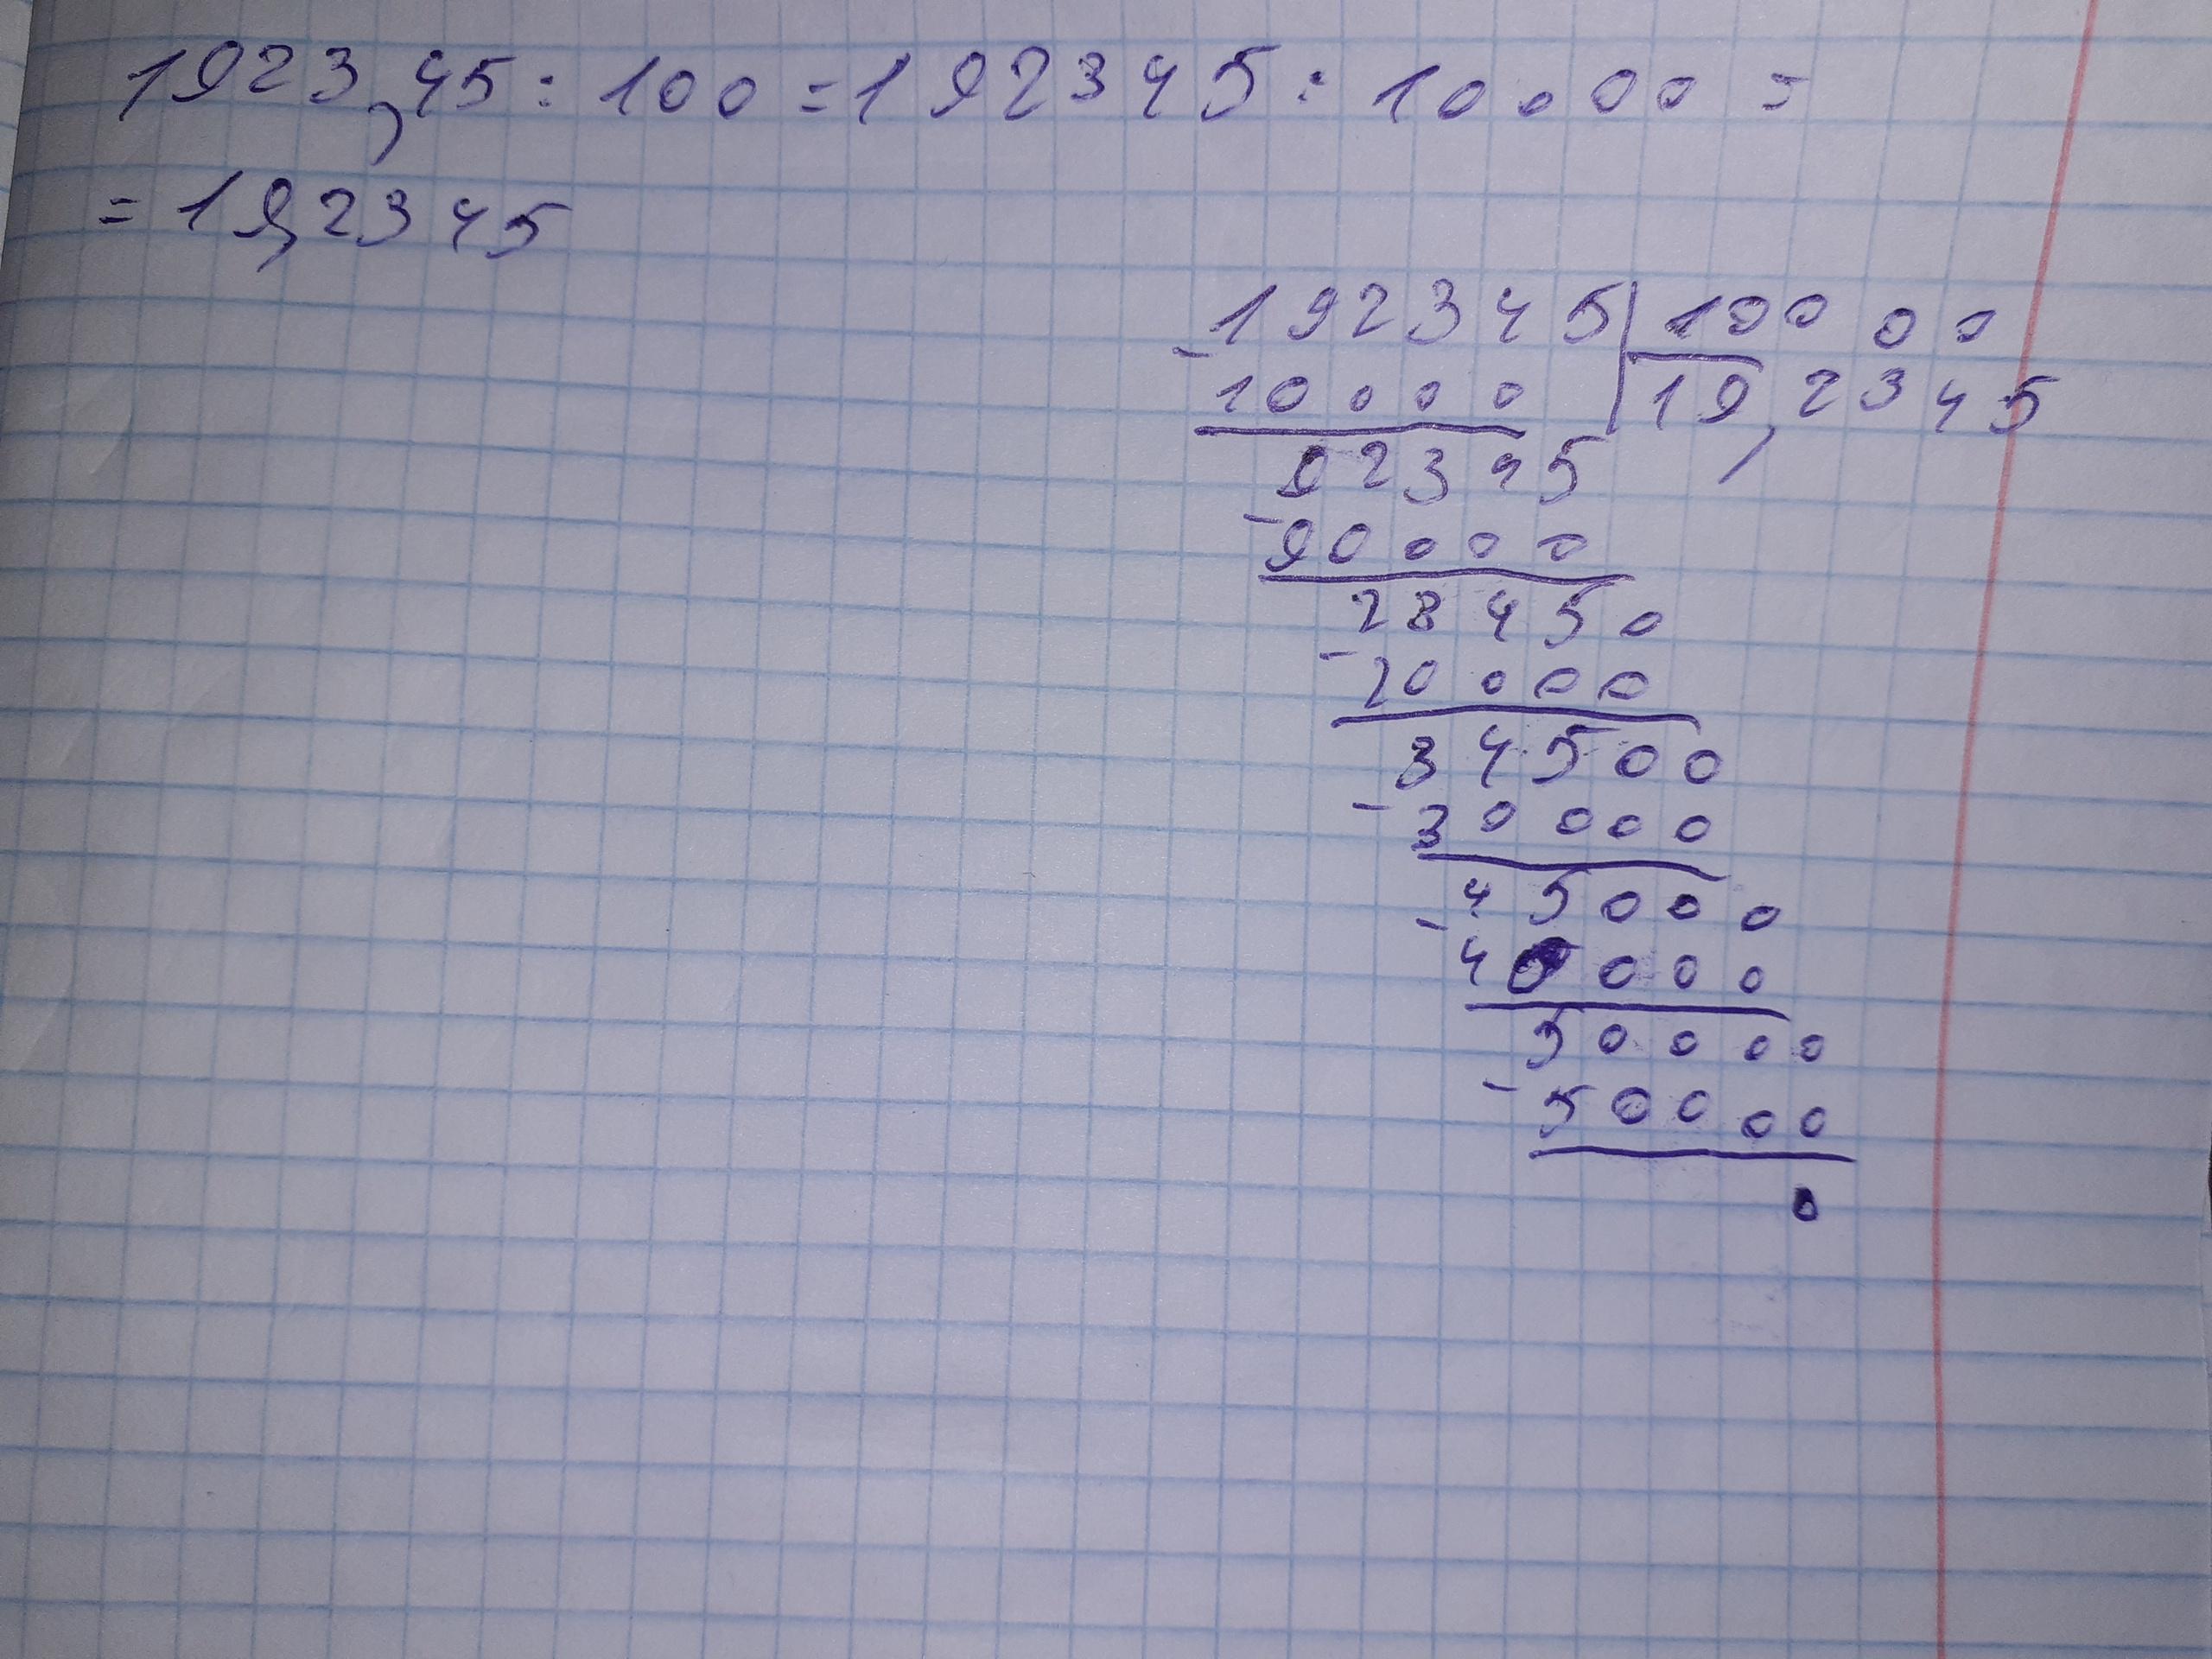 1923,45 : 100 = 192345 : 10000 =
= 19,2345
192345 | 10000
- 10000 | 19,2345
92345
- 90000
23450
- 20000
34500
- 30000
45000
- 40000
50000
- 50000
0